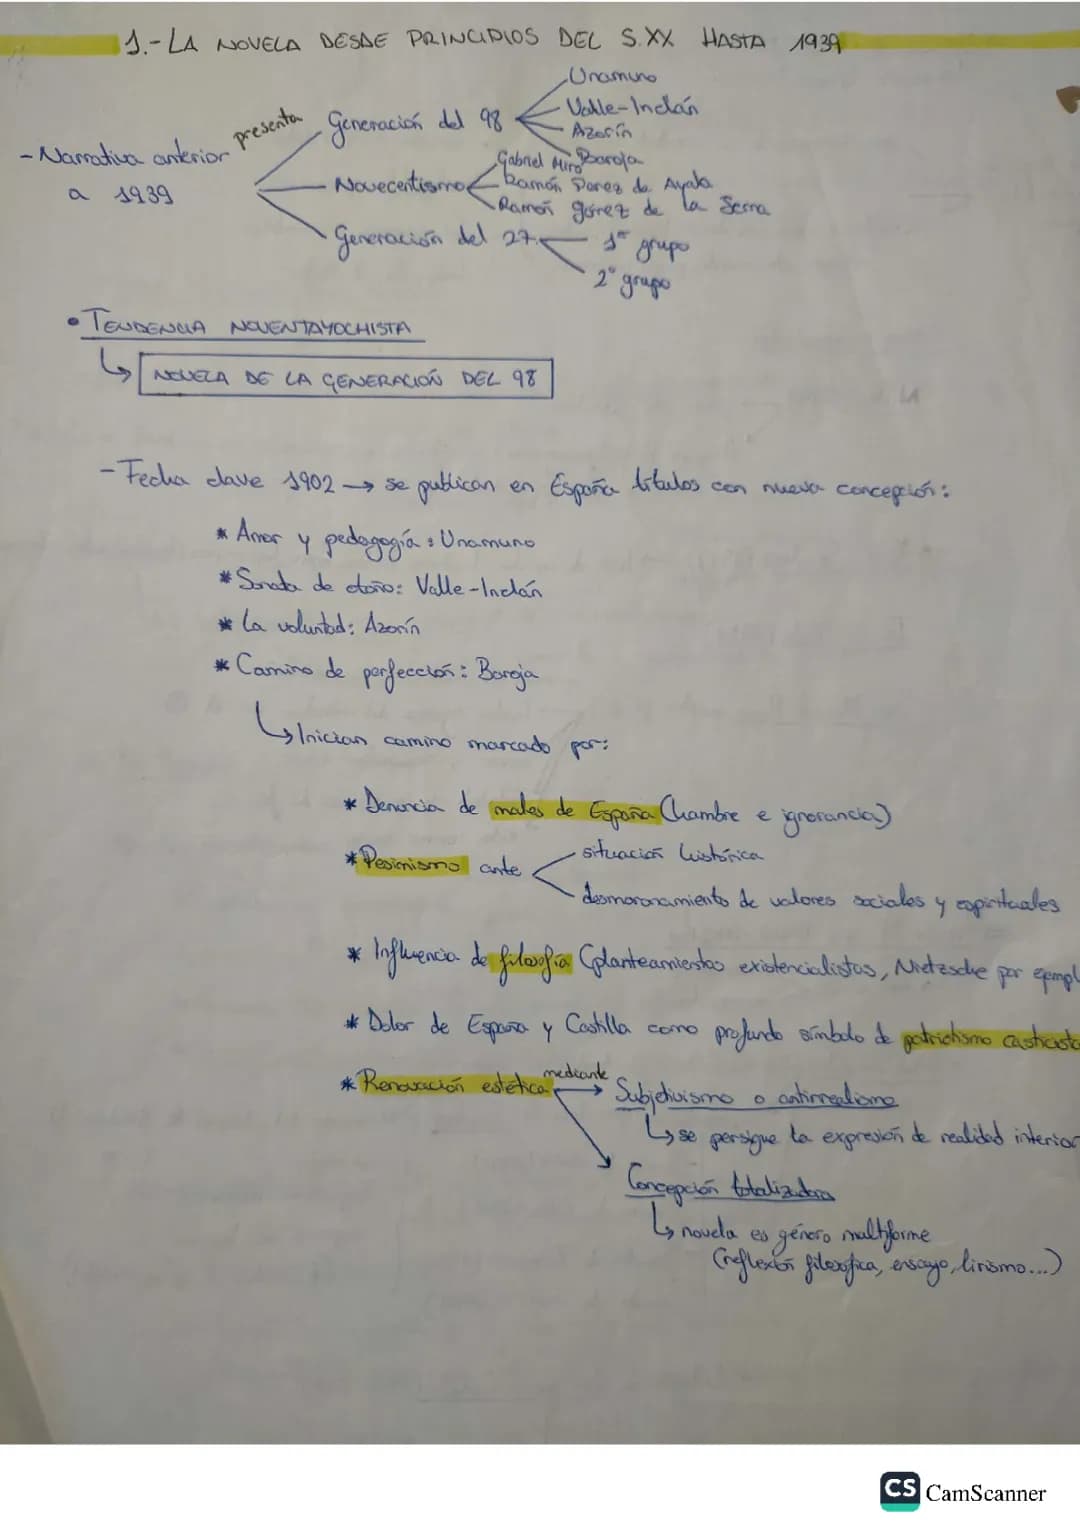 1.- LA NOVELA DESDE PRINCIPIOS DEL S.XX HASTA 1939
- Narrativa anterior a 1939
presenta
Generación del 98
Unamuno
Valle-Inclán
Azorín
Baroja
Novecentismo
Gabriel Miró
Ramón Perez de Ayala
Ramón gómez de la Serna
Generación del 27
1er grupo
2º grupo
• TENDENCIA NOVENTAYOCHISTA
NOVELA DE LA GENERACIÓN DEL 98
- Fecha clave 1902 → se publican en España títulos con nueva concepción:
* Amor y pedagogía: Unamuno
* Sonata de otoño: Valle-Inclán
* La voluntad: Azorín
* Camino de perfección: Baroja
↳ Inician camino marcado por:
* Denuncia de males de España (hambre e ignorancia)
* Pesimismo ante
situación histórica
desmoronamiento de valores sociales y espirituales
* Influencia de filosofía (planteamientos existencialistas, Nietzsche por ejempl
* Dolor de España y Castilla como profundo símbolo de patriotismo casticista
* Renovación estética
mediante
→ Subjetivismo o antirrealismo
↳ se persigue la expresión de realidad interior
Concepción totalizadora
↳ novela es género multiforme
(reflexión filosófica, ensayo, lirismo...)
CS CamScanner